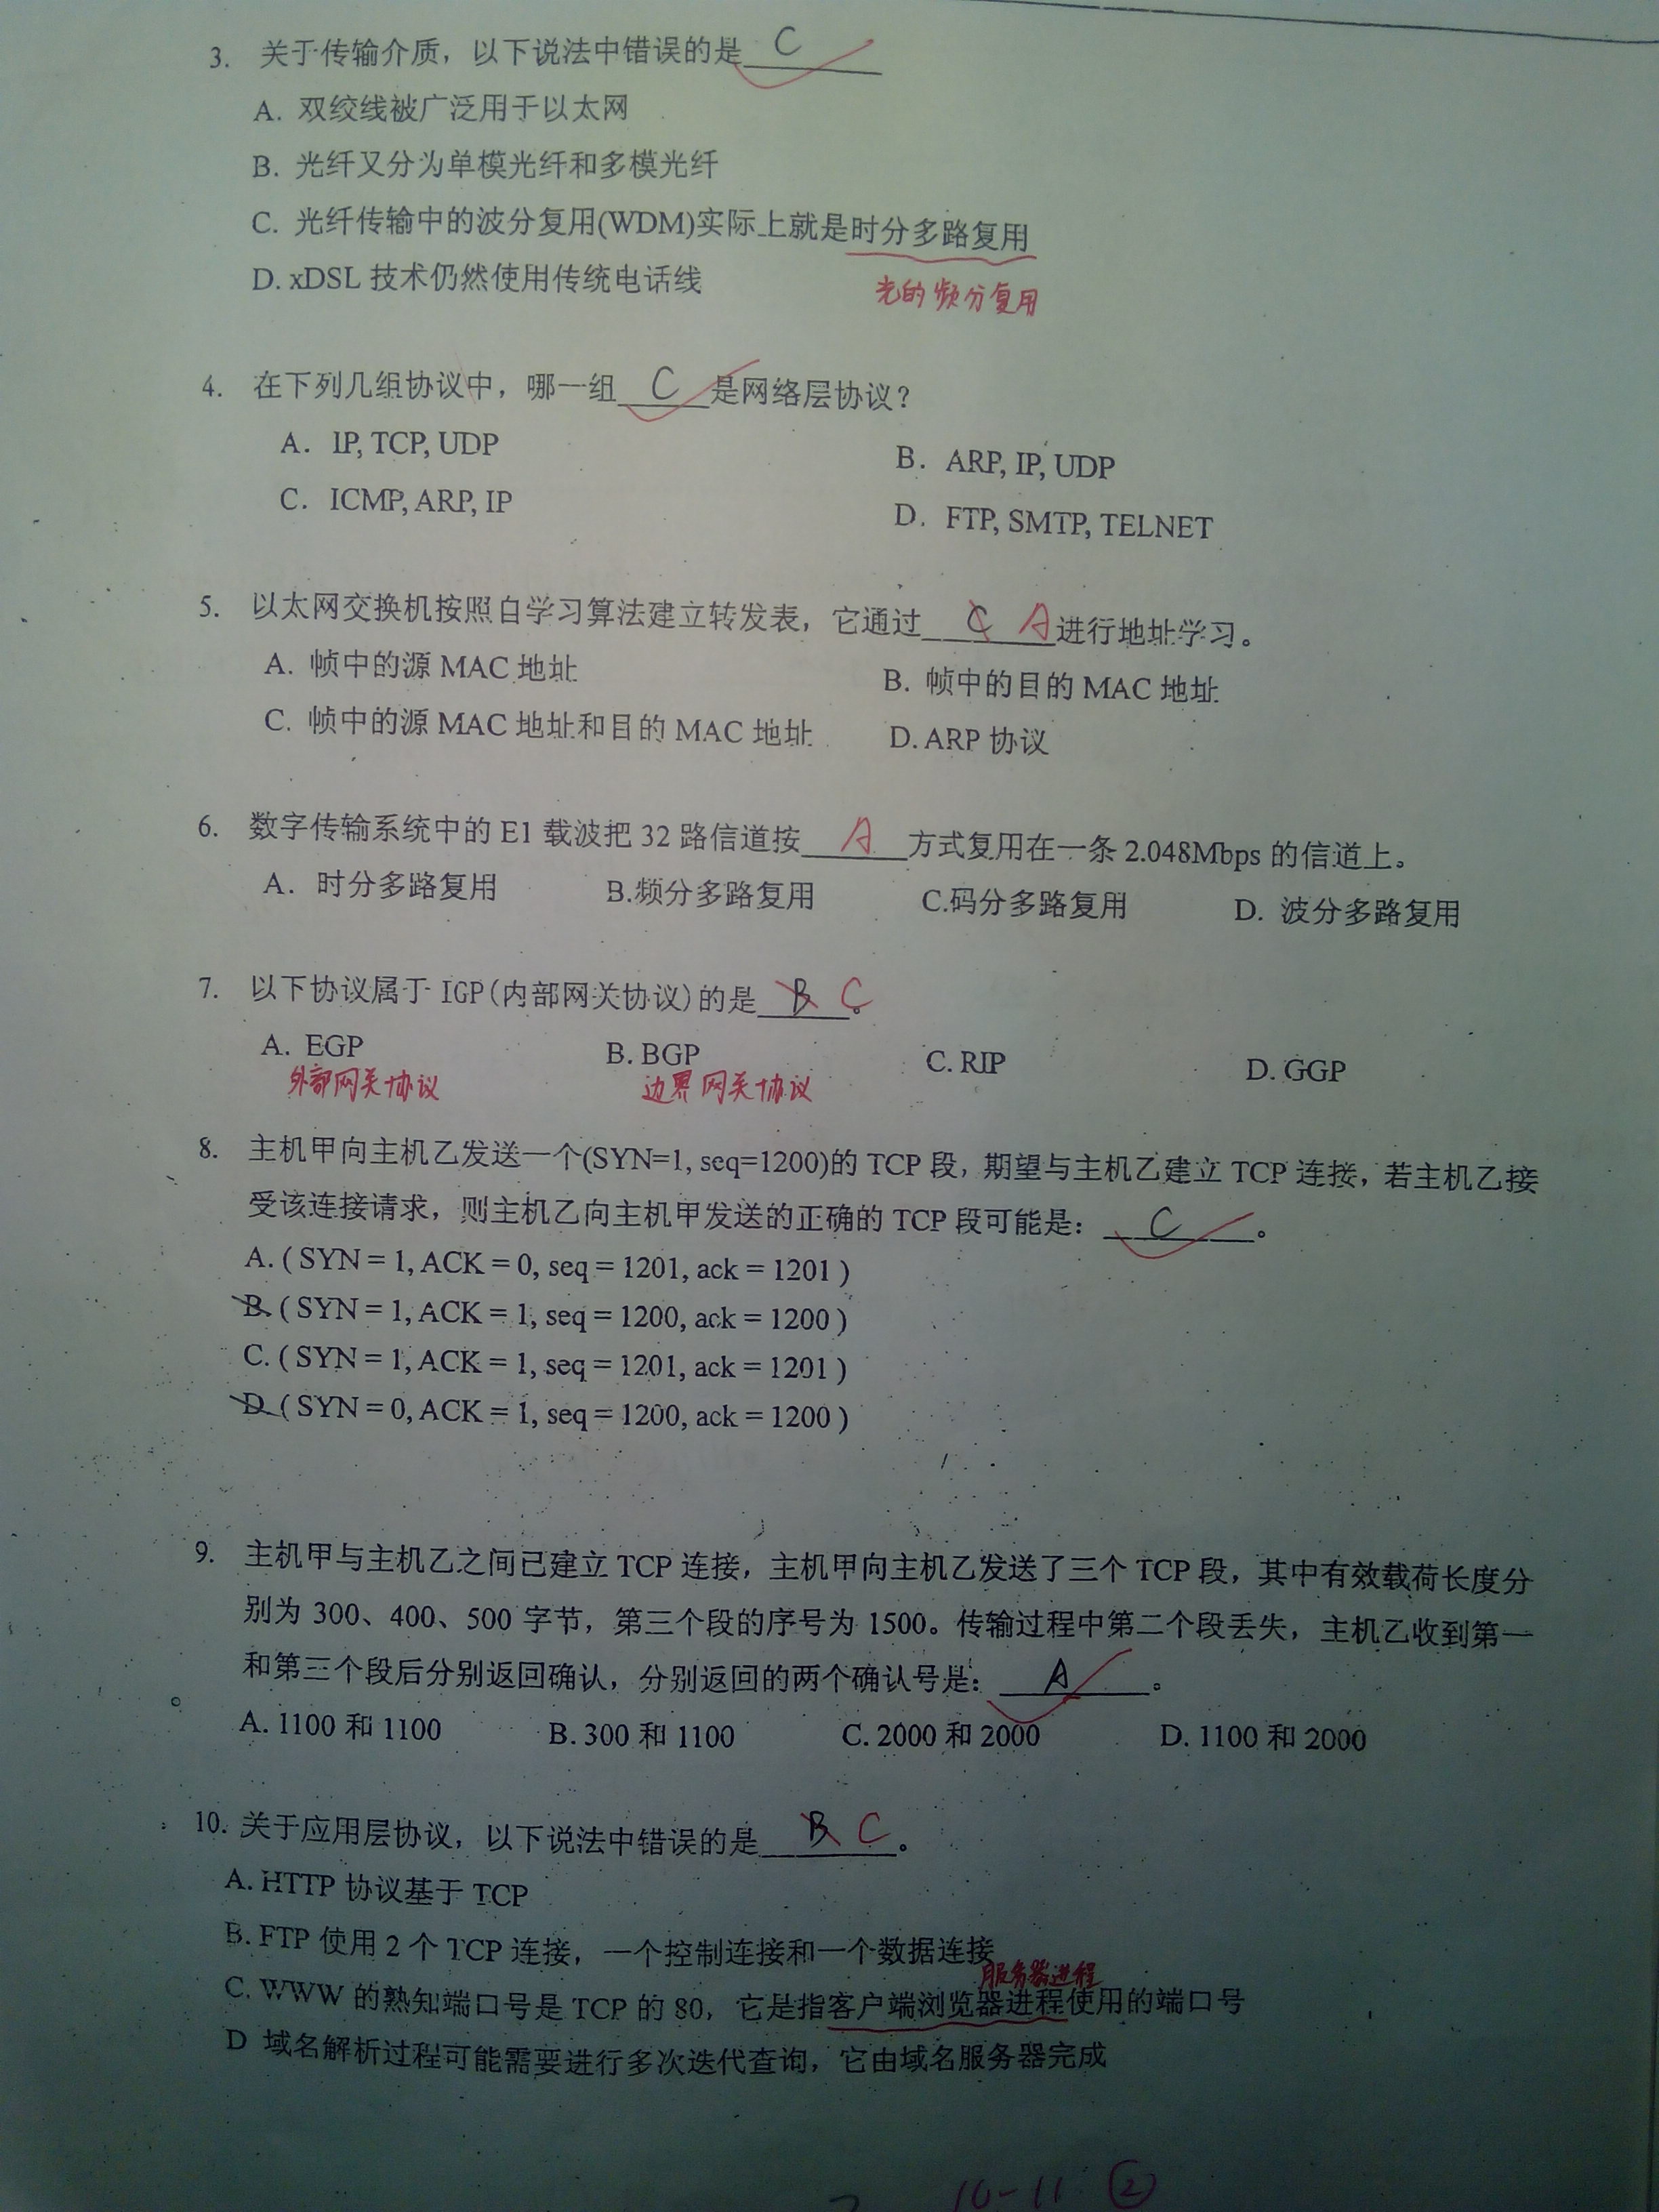 3. 关于传输介质，以下说法中错误的是 C
A. 双绞线被广泛用于以太网
B. 光纤又分为单模光纤和多模光纤
C. 光纤传输中的波分复用(WDM)实际上就是时分多路复用
D. xDSL 技术仍然使用传统电话线
光的频分复用
4. 在下列几组协议中，哪一组 C 是网络层协议？
A. IP, TCP, UDP B. ARP, IP, UDP
C. ICMP, ARP, IP D. FTP, SMTP, TELNET
5. 以太网交换机按照自学习算法建立转发表，它通过 C A 进行地址学习。
A. 帧中的源 MAC 地址 B. 帧中的目的 MAC 地址
C. 帧中的源 MAC 地址和目的 MAC 地址 D. ARP 协议
6. 数字传输系统中的 E1 载波把 32 路信道按 A 方式复用在一条 2.048Mbps 的信道上。
A. 时分多路复用 B.频分多路复用 C.码分多路复用 D. 波分多路复用
7. 以下协议属于 IGP(内部网关协议)的是 B C 。
A. EGP B. BGP C. RIP D. GGP
外部网关协议 边界网关协议
8. 主机甲向主机乙发送一个(SYN=1, seq=1200)的 TCP 段，期望与主机乙建立 TCP 连接，若主机乙接
受该连接请求，则主机乙向主机甲发送的正确的 TCP 段可能是： C 。
A. ( SYN = 1, ACK = 0, seq = 1201, ack = 1201 )
B. ( SYN = 1, ACK = 1, seq = 1200, ack = 1200 )
C. ( SYN = 1, ACK = 1, seq = 1201, ack = 1201 )
D. ( SYN = 0, ACK = 1, seq = 1200, ack = 1200 )
9. 主机甲与主机乙之间已建立 TCP 连接，主机甲向主机乙发送了三个 TCP 段，其中有效载荷长度分
别为 300、400、500 字节，第三个段的序号为 1500。传输过程中第二个段丢失，主机乙收到第一
和第三个段后分别返回确认，分别返回的两个确认号是： A 。
A. 1100 和 1100 B. 300 和 1100 C. 2000 和 2000 D. 1100 和 2000
10. 关于应用层协议，以下说法中错误的是 B C 。
A. HTTP 协议基于 TCP
B. FTP 使用 2 个 TCP 连接，一个控制连接和一个数据连接
服务器进程
C. WWW 的熟知端口号是 TCP 的 80，它是指客户端浏览器进程使用的端口号
D 域名解析过程可能需要进行多次迭代查询，它由域名服务器完成
10-11 ②